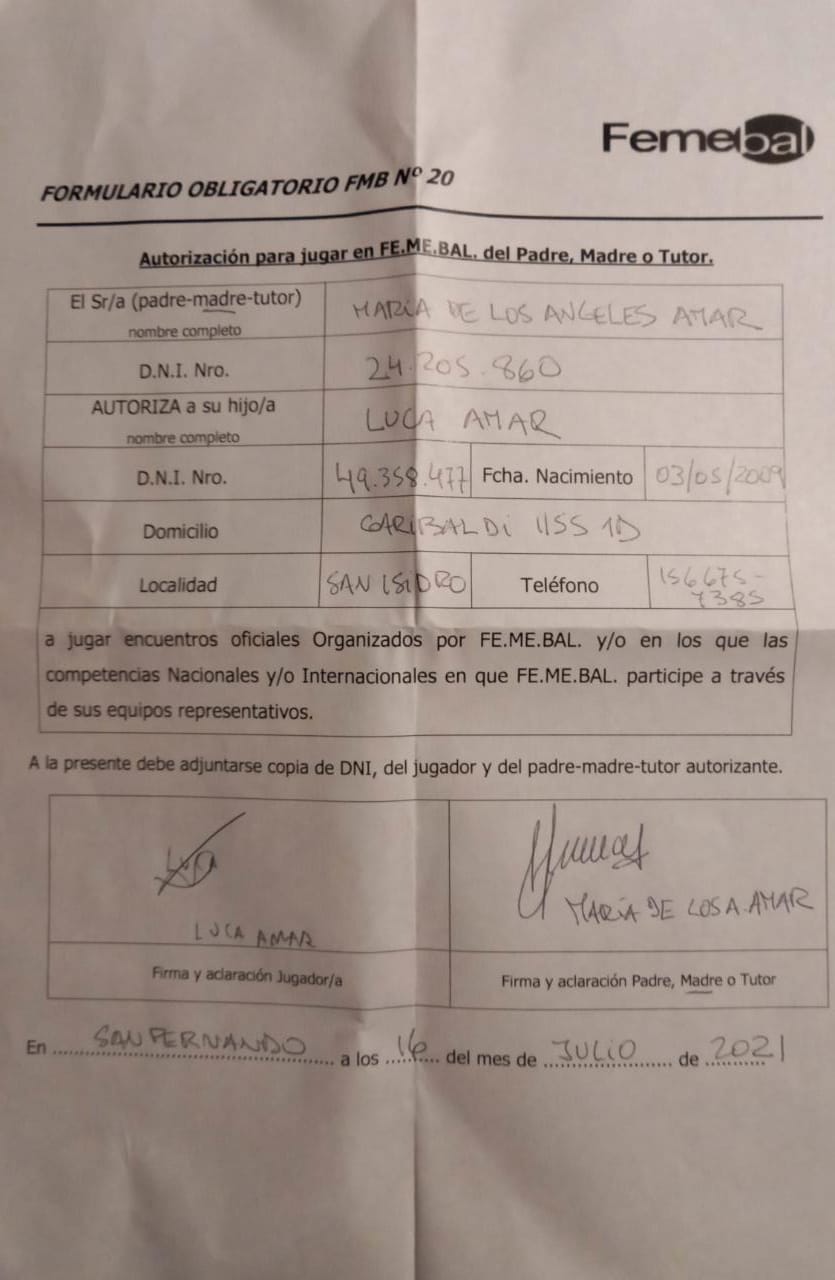 Femebal
FORMULARIO OBLIGATORIO FMB Nº 20
Autorización para jugar en FE.ME.BAL. del Padre, Madre o Tutor.
El Sr/a (padre-madre-tutor) MARÍA DE LOS ANGELES AMAR
nombre completo
D.N.I. Nro. 24.205.860
AUTORIZA a su hijo/a LUCA AMAR
nombre completo
D.N.I. Nro. 49.358.477 Fcha. Nacimiento 03/05/2009
Domicilio GARIBALDI 1155 1D
Localidad SAN ISIDRO Teléfono 156675-
7385
a jugar encuentros oficiales Organizados por FE.ME.BAL. y/o en los que las
competencias Nacionales y/o Internacionales en que FE.ME.BAL. participe a través
de sus equipos representativos.
A la presente debe adjuntarse copia de DNI, del jugador y del padre-madre-tutor autorizante.
LUCA AMAR MARÍA DE LOS A. AMAR
Firma y aclaración Jugador/a Firma y aclaración Padre, Madre o Tutor
En SAN FERNANDO a los 16 del mes de JULIO de 2021